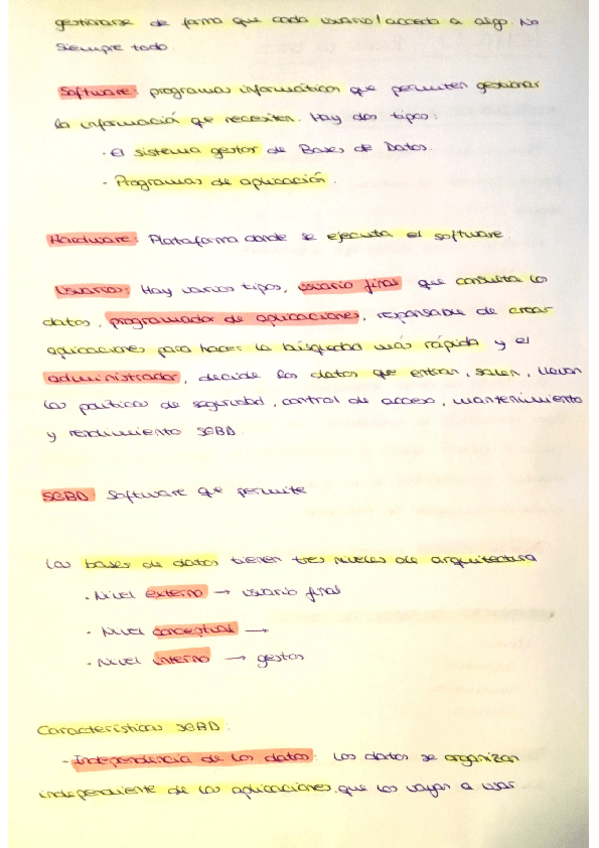 gestionarse de forma que cada usuario/acceda a algo. No
siempre todo.
Software: programas informáticos que permiten gestionar
la informació que necesiten. Hay dos tipos:
· El sistema gestor de Bases de Datos.
· Programas de aplicación.
Hardware: Plataforma donde se ejecuta el software
Usuarios: Hay varios tipos, usuario final que consulta los
datos, programador de aplicaciones, responsable de crear
aplicaciones para hacer la búsqueda más rápida y el
administrador, decide los datos que entran, salen, llevan
las políticas de seguridad, control de acceso, mantenimiento
y rendimiento SGBD.
SGBD: Software que permite
Las bases de datos tienen tres niveles de arquitectura
· Nivel externo → usuario final
· Nivel conceptual →
· Nivel interno → gestor
Características SGBD:
- Independencia de los datos: Los datos se organizan
independiente de las aplicaciones que los vayan a usar